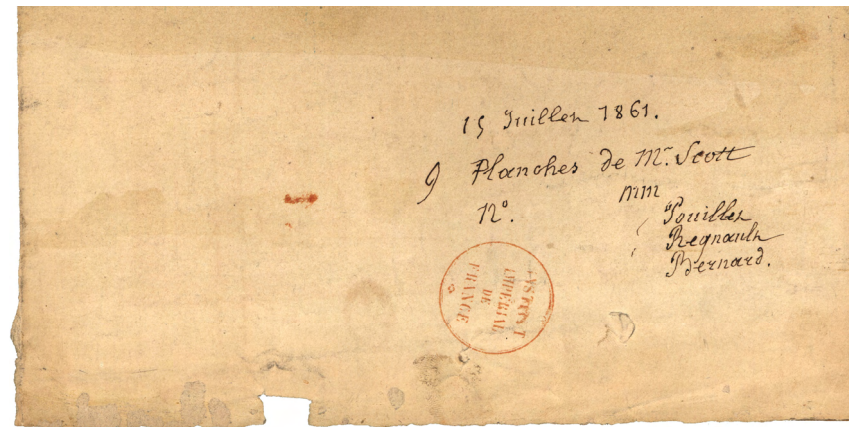 15 Juillet 1861.
9 Planches de Mr. Scott
N°.
MM
Pouillet
Regnault
Bernard.
INSTITUT
IMPÉRIAL
DE
FRANCE